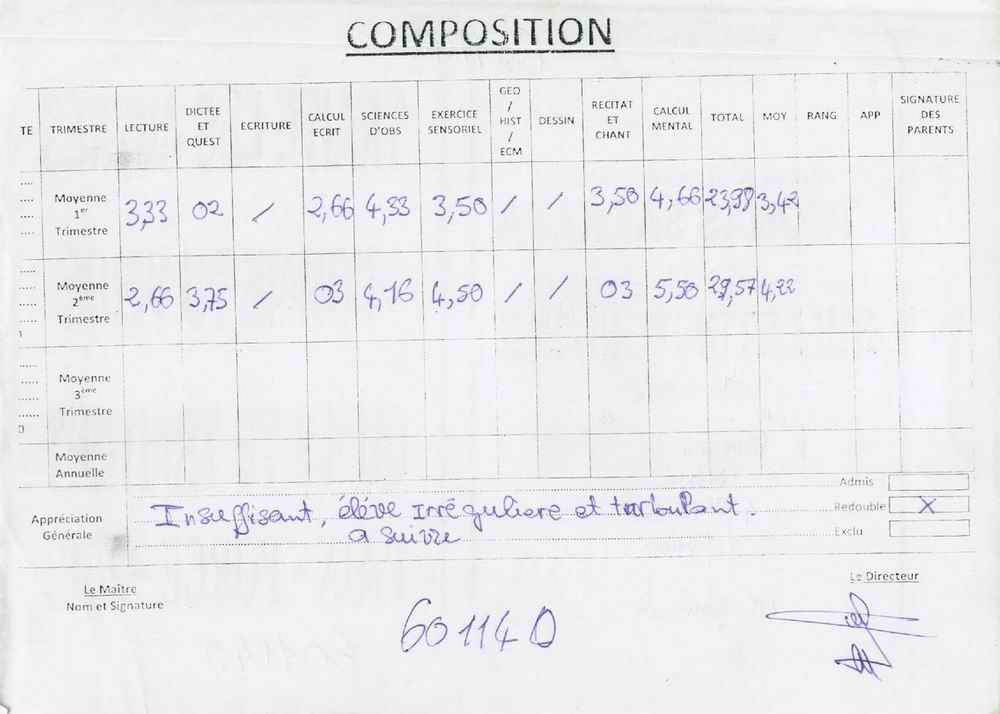 COMPOSITION
TE TRIMESTRE LECTURE DICTEE ET QUEST ECRITURE CALCUL ECRIT SCIENCES D'OBS EXERCICE SENSORIEL GEO / HIST / ECM DESSIN RECITAT ET CHANT CALCUL MENTAL TOTAL MOY RANG APP SIGNATURE DES PARENTS
Moyenne 1er Trimestre 3,33 02 / 2,66 4,33 3,50 / / 3,50 4,66 3,42
Moyenne 2ème Trimestre 2,66 3,75 / 03 4,16 4,50 / / 03 5,50 29,57 4,22
Moyenne 3ème Trimestre
Moyenne Annuelle
Admis
Appréciation Générale Insuffisant, élève irrégulière et turbulant. Redouble X
a suivre Exclu
Le Maître
Nom et Signature
Le Directeur
60114 D